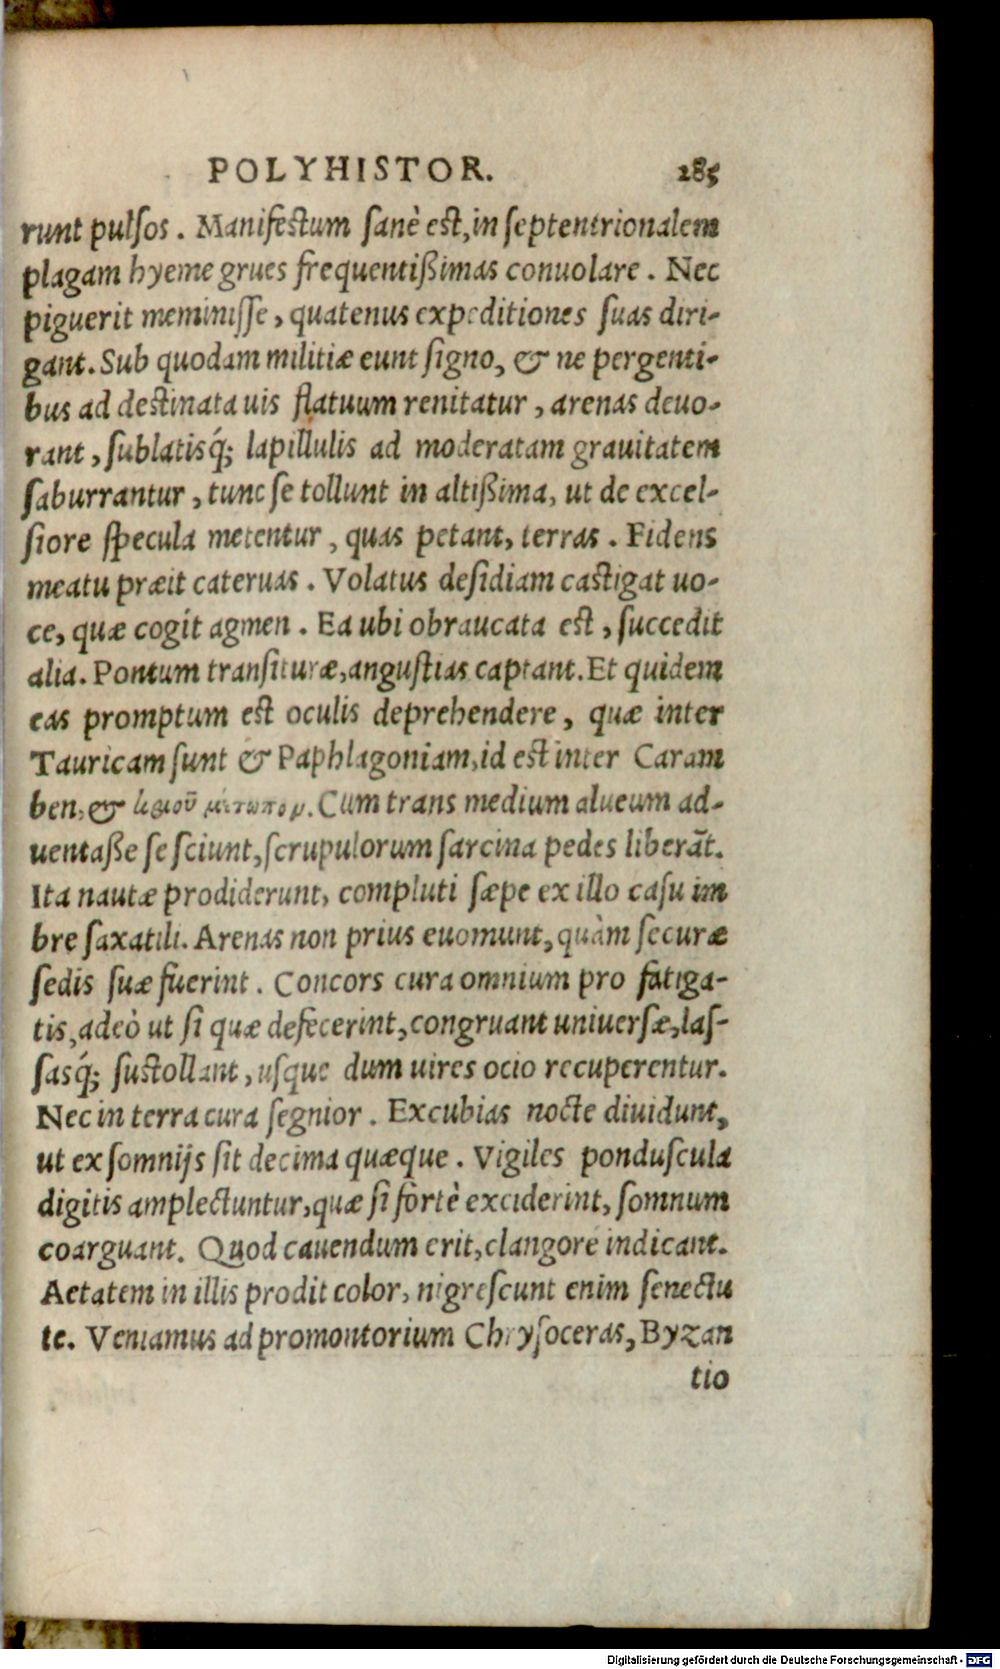 POLYHISTOR. 185
runt pulſos. Manifeſtum ſanè eſt, in ſeptentrionalem
plagam hyeme grues frequentißimas conuolare. Nec
piguerit meminiſſe, quatenus expeditiones ſuas diri-
gant. Sub quodam militiæ eunt ſigno, & ne pergenti-
bus ad deſtinata uis flatuum renitatur, arenas deuo-
rant, ſublatisq́; lapillulis ad moderatam grauitatem
ſaburrantur, tunc ſe tollunt in altißima, ut de excel-
ſiore ſpecula metentur, quas petant, terras. Fidens
meatu præit cateruas. Volatus deſidiam caſtigat uo-
ce, quæ cogit agmen. Ea ubi obraucata eſt, ſuccedit
alia. Pontum tranſituræ, anguſtias captant. Et quidem
eas promptum eſt oculis deprehendere, quæ inter
Tauricam ſunt & Paphlagoniam, id eſt inter Caram
ben, & Cum trans medium alueum ad-
uentaße ſe ſciunt, ſcrupulorum ſarcina pedes liberāt.
Ita nautæ prodiderunt, compluti ſæpe ex illo caſu im
bre ſaxatili. Arenas non prius euomunt, quàm ſecuræ
ſedis ſuæ fuerint. Concors cura omnium pro fatiga-
tis, adeò ut ſi quæ defecerint, congruant uniuerſæ, laſ-
ſasq́; ſuſtollant, uſque dum uires ocio recuperentur.
Nec in terra cura ſegnior. Excubias nocte diuidunt,
ut ex ſomnijs ſit decima quæque. Vigiles ponduſcula
digitis amplectuntur, quæ ſi fortè exciderint, ſomnum
coarguant. Quod cauendum erit, clangore indicant.
Aetatem in illis prodit color, nigreſcunt enim ſenectu
te. Veniamus ad promontorium Chryſoceras, Byzan
tio
Digitalisierung gefördert durch die Deutsche Forschungsgemeinschaft - DFG